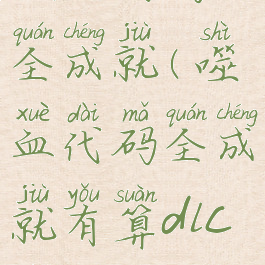 quán chéng jiù shì
全成就(噬
xuè dài mǎ quán chéng
血代码全成
jiù yǒu suàn
就有算dlc